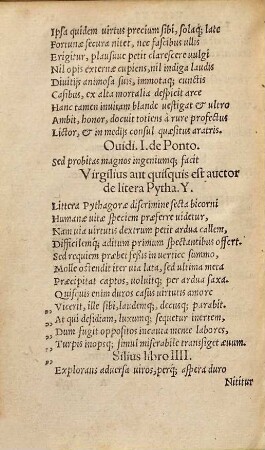 Ipsa quidem uirtus precium sibi, solaq; late
Fortunæ secura nitet, nec fascibus ullis
Erigitur, plausuue petit clarescere uulgi
Nil opis externæ cupiens, nil indiga laudis
Diuitijs animosa suis, immotaq; cunctis
Casibus, ex alta mortalia despicit arce
Hanc tamen inuitam blande uestigat & ultro
Ambit, honor, docuit toties à rure profectus
Lictor, & in medijs consul quæsitus aratris.
Ouidi. I. de Ponto.
Sed probitas magnos ingeniumq; facit
Virgilius aut quisquis est auctor
de litera Pytha. Y.
Littera Pythagoræ discrimine secta bicorni
Humanæ uitæ speciem præferre uidetur,
Nam uia uirtutis dextrum petit ardua callem,
Difficilemq; aditum primum spectantibus offert.
Sed requiem præbet fessis in uertice summo,
Molle ostendit iter uia lata, sed ultima meta
Præcipitat captos, uoluitq; per ardua saxa.
Quisquis enim duros casus uirtutis amore
Vicerit, ille sibi, laudemq;, decusq; parabit.
At qui desidiam, luxumq; sequetur inertem,
Dum fugit oppositos incauta mente labores,
Turpis inopsq; simul miserabile transiget æuum.
Silius libro IIII.
Explorant aduersa uiros, perq; aspera duro
Nititur